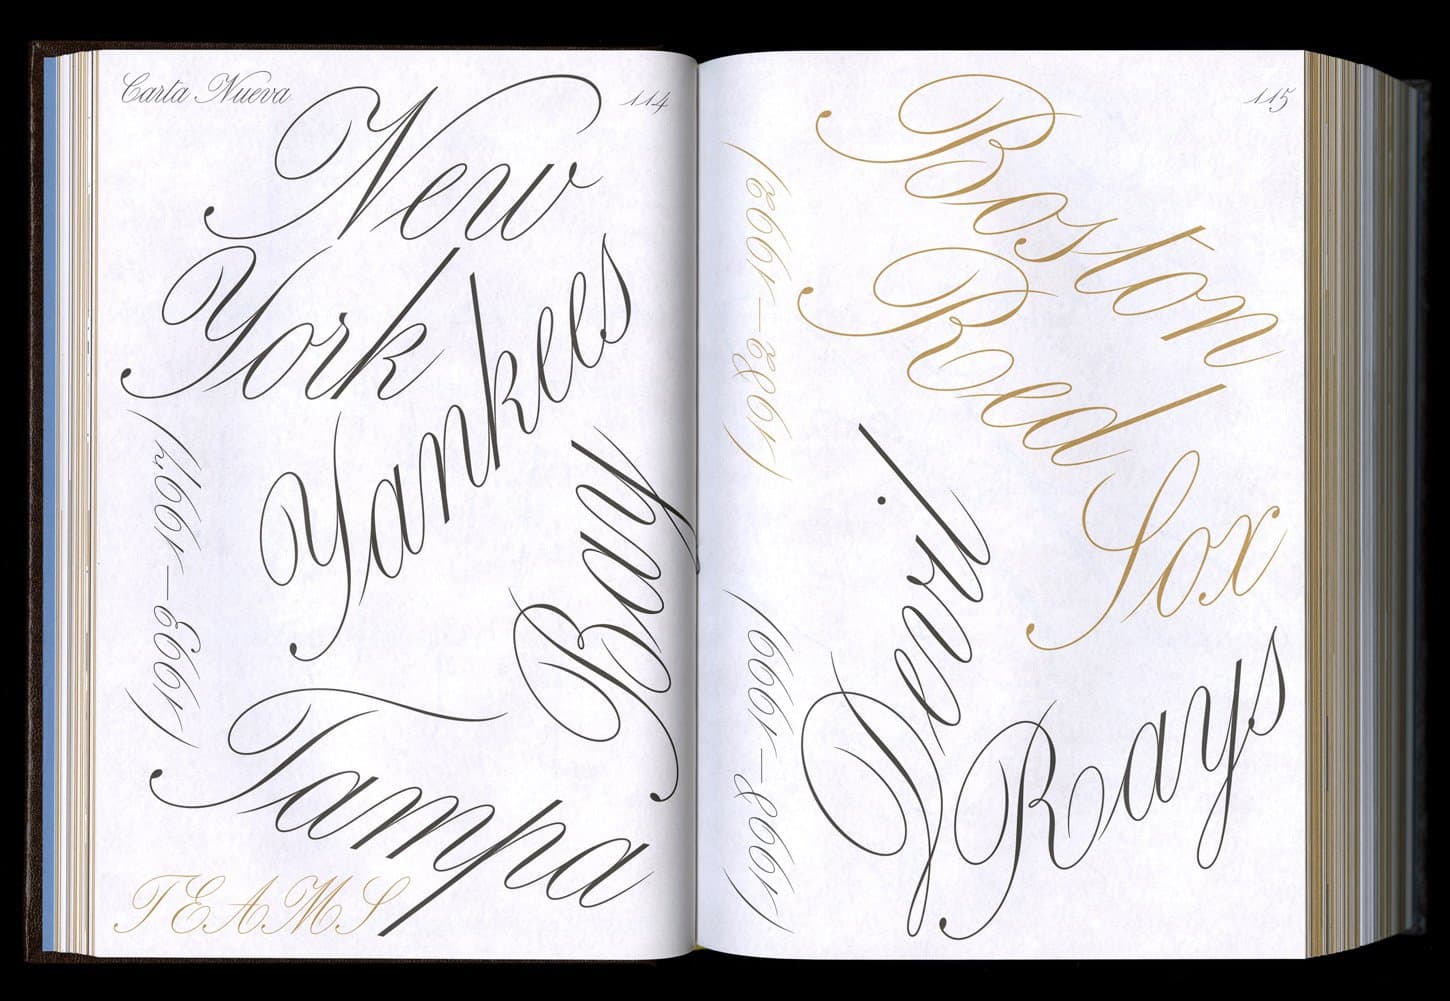 Carta Nueva
114
New
York
Yankees
(1993–1997)
Tampa
Bay
TEAMS
115
Boston
Red
Sox
(1982–1992)
Devil
Rays
(1998–1999)